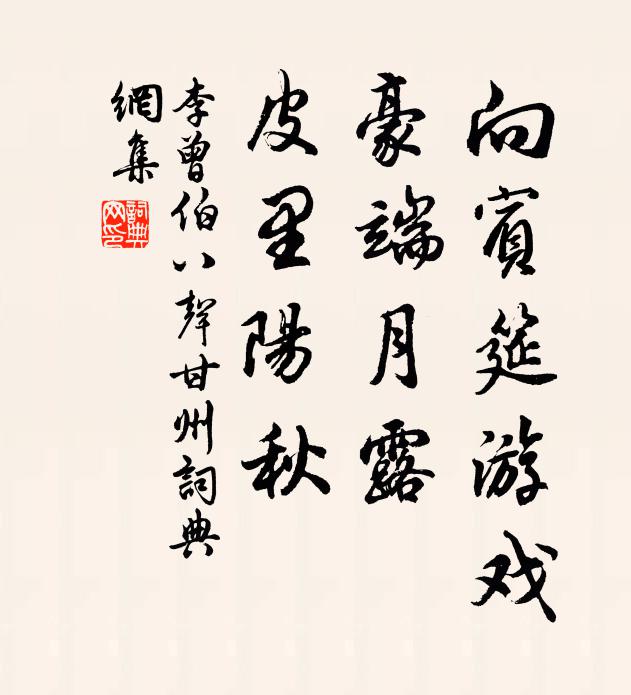 向賓筵游戏
豪端月露
皮里陽秋
李曾伯八聲甘州詞典
網集
詞典網印